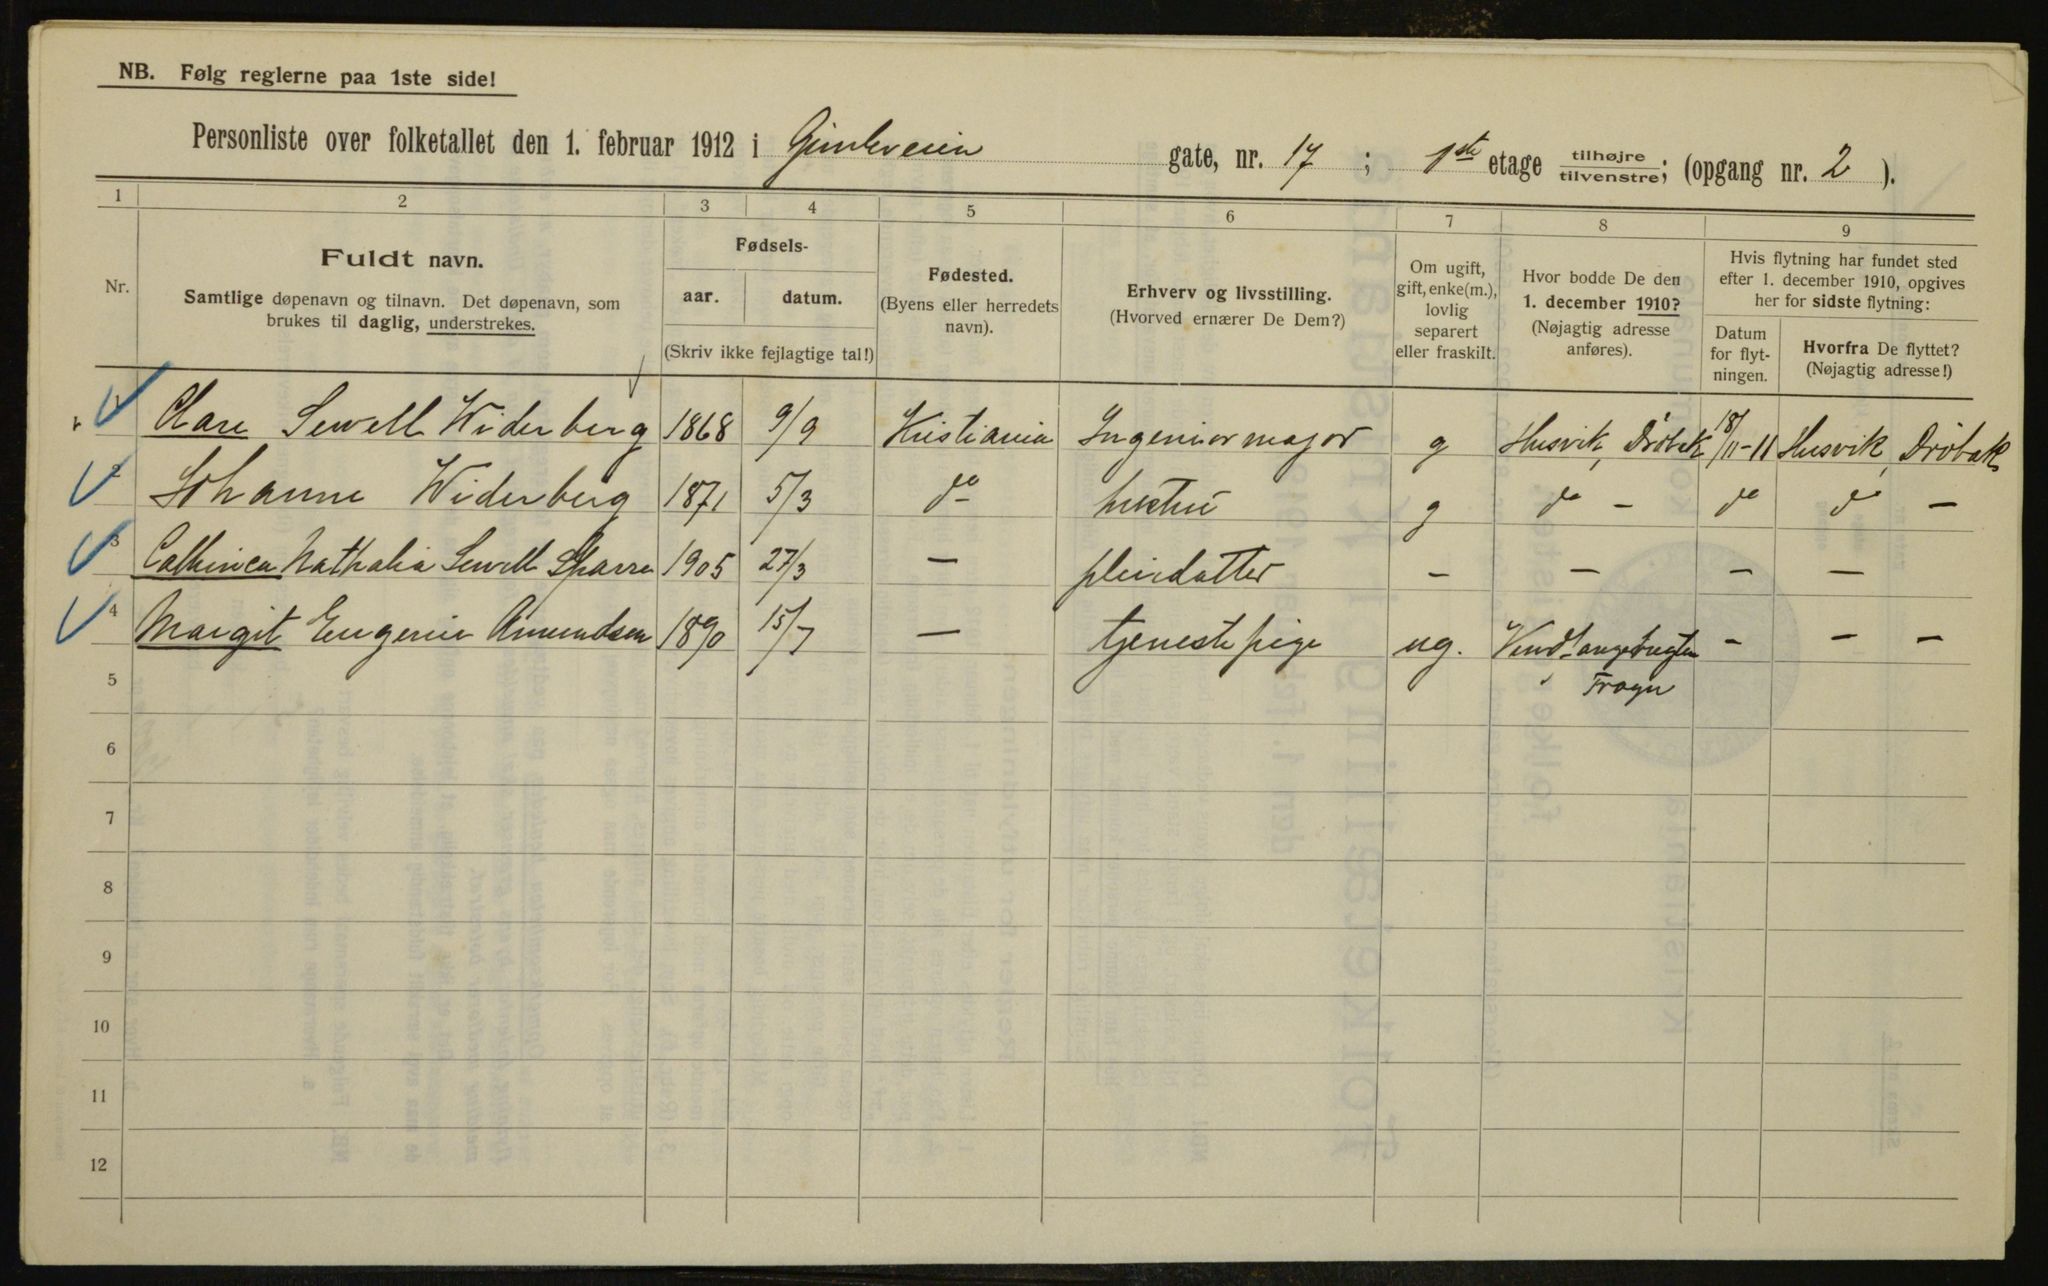 NB. Følg reglerne paa 1ste side!
Personliste over folketallet den 1. februar 1912 i Gimleveien gate, nr. 17; 1ste etage tilhøjre/tilvenstre; (opgang nr. 2).
1 2 3 4 5 6 7 8 9
Nr.
Fuldt navn.
Samtlige døpenavn og tilnavn. Det døpenavn, som
brukes til daglig, understrekes.
Fødsels-
aar. datum.
(Skriv ikke fejlagtige tal!)
Fødested.
(Byens eller herredets
navn).
Erhverv og livsstilling.
(Hvorved ernærer De Dem?)
Om ugift,
gift, enke(m.),
lovlig
separert
eller fraskilt.
Hvor bodde De den
1. december 1910?
(Nøjagtig adresse
anføres).
Hvis flytning har fundet sted
efter 1. december 1910, opgives
her for sidste flytning:
Datum
for flyt-
ningen.
Hvorfra De flyttet?
(Nøjagtig adresse!)
1 Clare Sewell Widerberg 1868 9/9 Kristiania Ingeniørmajor g Husvik, Drøbak 18/11-11 Husvik, Drøbak
2 Johanne Widerberg 1871 5/3 do hustru g do - do do -
3 Cathinca Nathalia Sewell Sparre 1905 27/3 — pleiedatter - - - -
4 Margit Eugenie Amundsen 1890 15/7 — tjenestepige ug. - - -
Frogn
5
6
7
8
9
10
11
12